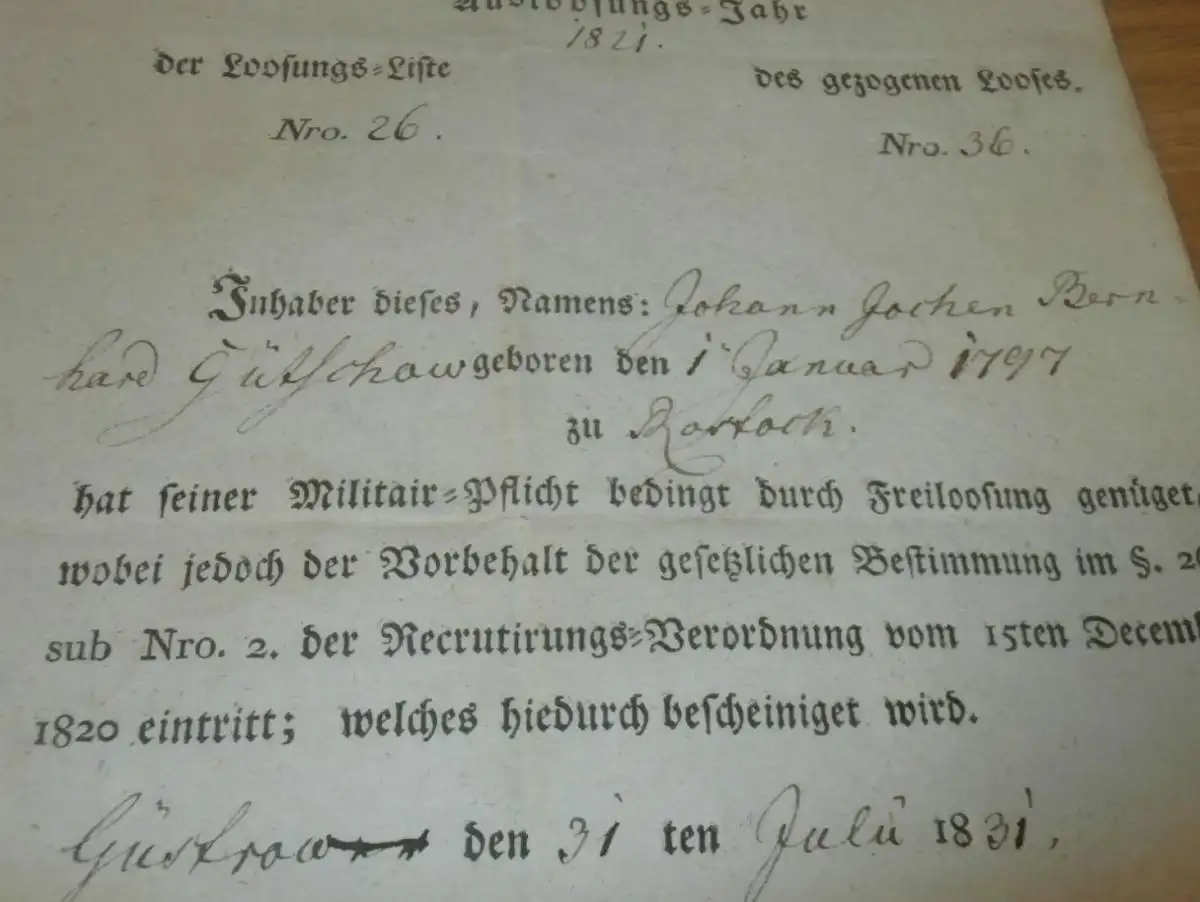 Ausloosungs-Jahr
1821.
der Loosungs-Liste
des gezogenen Looses.
Nro. 26.
Nro. 36.
Inhaber dieses, Namens: Johann Jochen Bern-
hard Gütschow geboren den 1 Januar 1797
zu Rostock.
hat seiner Militair-Pflicht bedingt durch Freiloosung genüget,
wobei jedoch der Vorbehalt der gesetzlichen Bestimmung im §.
sub Nro. 2. der Recrutirungs-Verordnung vom 15ten Decem
1820 eintritt; welches hiedurch bescheiniget wird.
Güstrow den 31 ten Julii 1831.